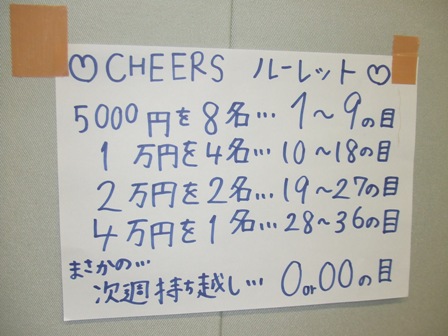 ♡CHEERS ルーレット♡
5000円を8名… 1～9の目
1万円を4名… 10～18の目
2万円を2名… 19～27の目
4万円を1名… 28～36の目
まさかの…
次週持ち越し… 0or00の目